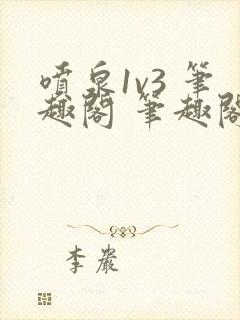 噴泉1v3 筆
趣閣 筆趣閣
李嚴